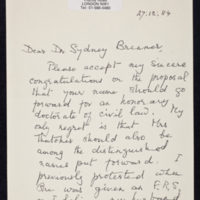 LONDON NW1
Tel: 01-586 4480
27:12:84
Dear Dr Sydney Brenner
Please accept my sincere
congratulations on the proposal
that your name should go
forward for an honorary
doctorate of civil law. My
only regret is that Mrs
Thatcher should also be
among the distinguished
names put forward. I
previously protested when
she was given an F.R.S.